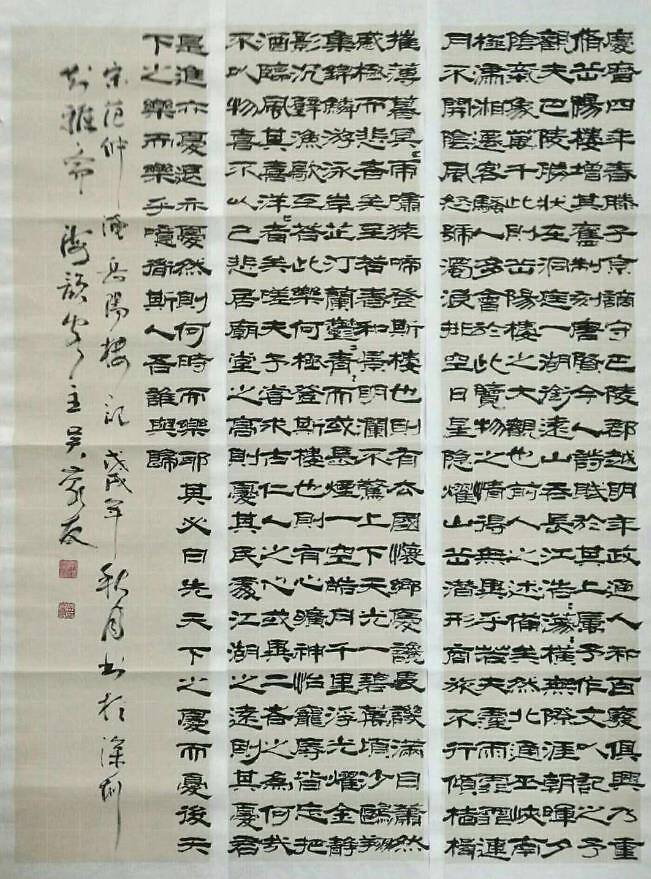 慶曆四年春滕子京謫守巴陵郡越明年政通人和百廢俱興乃重
脩岳陽樓增其舊制刻唐賢今人詩賦於其上屬予作文以記之予
觀夫巴陵勝狀在洞庭一湖銜遠山吞長江浩〻蕩〻橫無際涯朝暉夕
陰氣象萬千此則岳陽樓之大觀也前人之述備矣然北通巫峽南
極瀟湘遷客騷人多會於此覽物之情得無異乎若夫霪雨霏霏連
月不開陰風怒號濁浪排空日星隱燿山岳潛形商旅不行傾檣楫
摧薄暮冥〻雨嘯猿啼登斯樓也則有去國懷鄉憂讒畏譏滿目蕭然
感極而悲者矣至若春和景明瀾不驚上下天光一碧萬頃沙鷗翔
集錦鱗游泳岸芷汀蘭鬱〻青〻而或長煙一空皓月千里浮光耀金靜
影沉璧漁歌互答此樂何極登斯樓也則有心曠神怡寵辱皆忘把
酒臨風其喜洋〻者矣嗟夫予嘗求古仁人之心或異二者之為何哉
不以物喜不以己悲居廟堂之高則憂其民處江湖之遠則其憂君
是進亦憂退亦憂然則何時而樂耶其必曰先天下之憂而憂後天
下之樂而樂乎噫微斯人吾誰與歸
宋范仲淹岳陽樓記戊戌年秋月書於深圳
雅齋海韻主吳家友